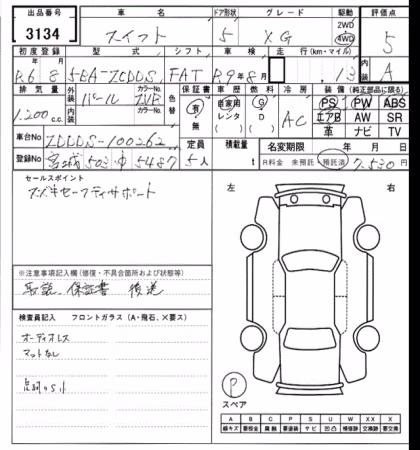 出品番号 車名 ドア形状 グレード 駆動 評価点
3134 スイフト 5 XG 2WD 4WD 5
初度登録 型式 シフト 車検 走行(km・マイル) 内装
R.6 8 5BA-ZCDDS FAT R.9年8月 13 A
排気量 外装 パール カラーNo. ZVR 色替 保証書 車歴 燃料 冷房 装備(純正部品に限る)
1.200c.c. 内装 カラーNo. 有・無 自家用 レンタ G D AC PS PW ABS
エアB AW SR
革 ナビ TV
車台No ZDDDS-100262 定員 積載量 名変期限 年 月 日
登録No 宮城 502 5487 5人 t R料金 未預託 預託済 7.530円
セールスポイント
スズキセーフティサポート
左 右
※注意事項記入欄(修復・不具合箇所および状態等)
取説、保証書 後送
検査員記入 フロントガラス(A・飛石、×要ス)
オーディオレス
マットなし
P
スペア
A B C P S U W X XX
線キズ 要板金 腐触 要塗装 サビ 凹凸 補修跡 要交換 交換跡